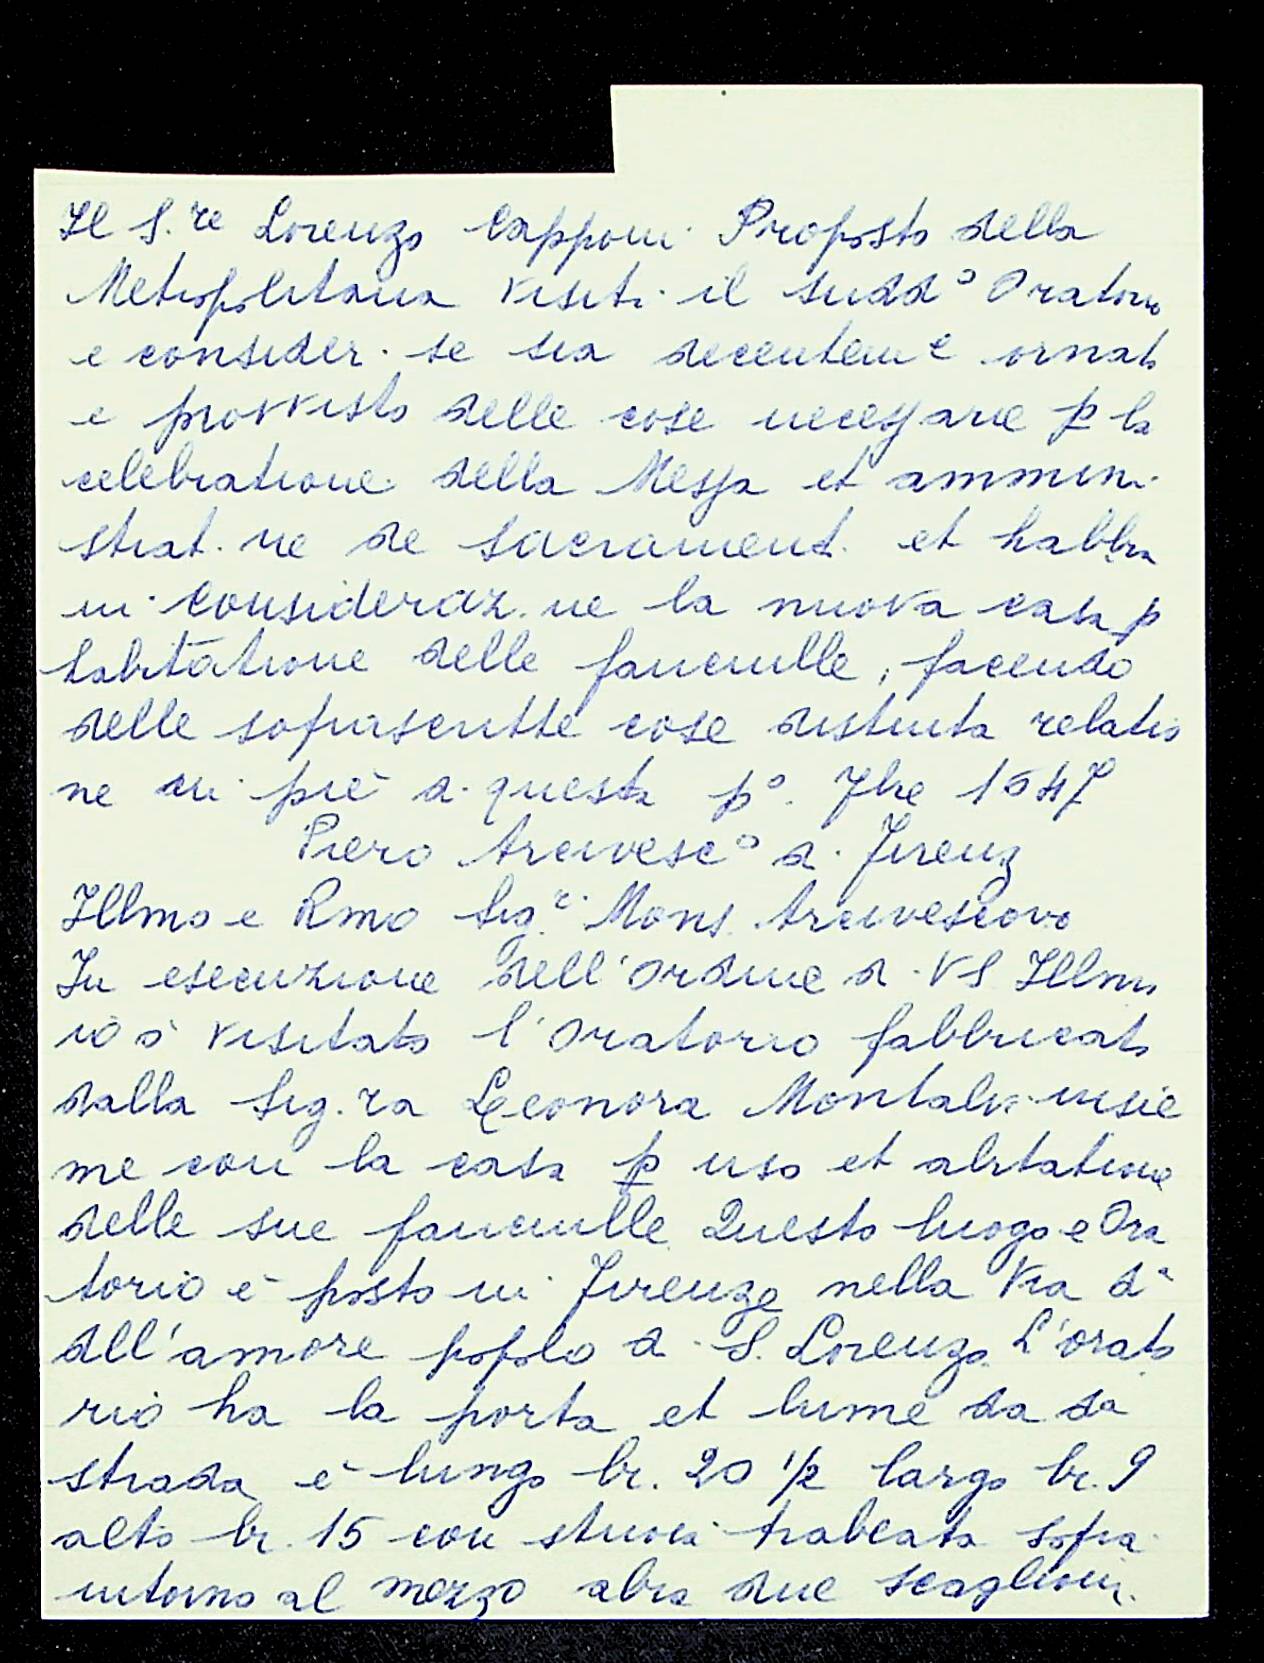 Il S.re Lorenzo Capponi Proposto della
Metropolitana visiti il sudd° Oratorio
e consideri se sia decentem e ornato
e provvisto delle cose necessarie p la
celebratione della Messa et ammini
strat.ne de sacramenti et habbia
in consideraz.ne la nuova casa p
habitatione delle fanciulle, facendo
delle soprascritte cose distinta relatio
ne in piè di questa p°. 7bre 1647
Piero Arcivesc° di Firenz
Illmo e Rmo Sig.r Mons. Arcivescovo
In esecuzione dell'ordine di VS Illma
io ò visitato l'oratorio fabbricato
dalla Sig.ra Leonora Montalvi insie
me con la casa p uso et abitatione
delle sue fanciulle Questo luogo e Ora
torio è posto in Firenze nella Via da
dell'amore popolo di S. Lorenzo. L'orato
rio ha la porta et lume da da
strada è lungo br. 20 1/2 largo br. 9
alto br. 15 con stuoia trabeata sopra
intorno al mezzo abia due scaglioni.